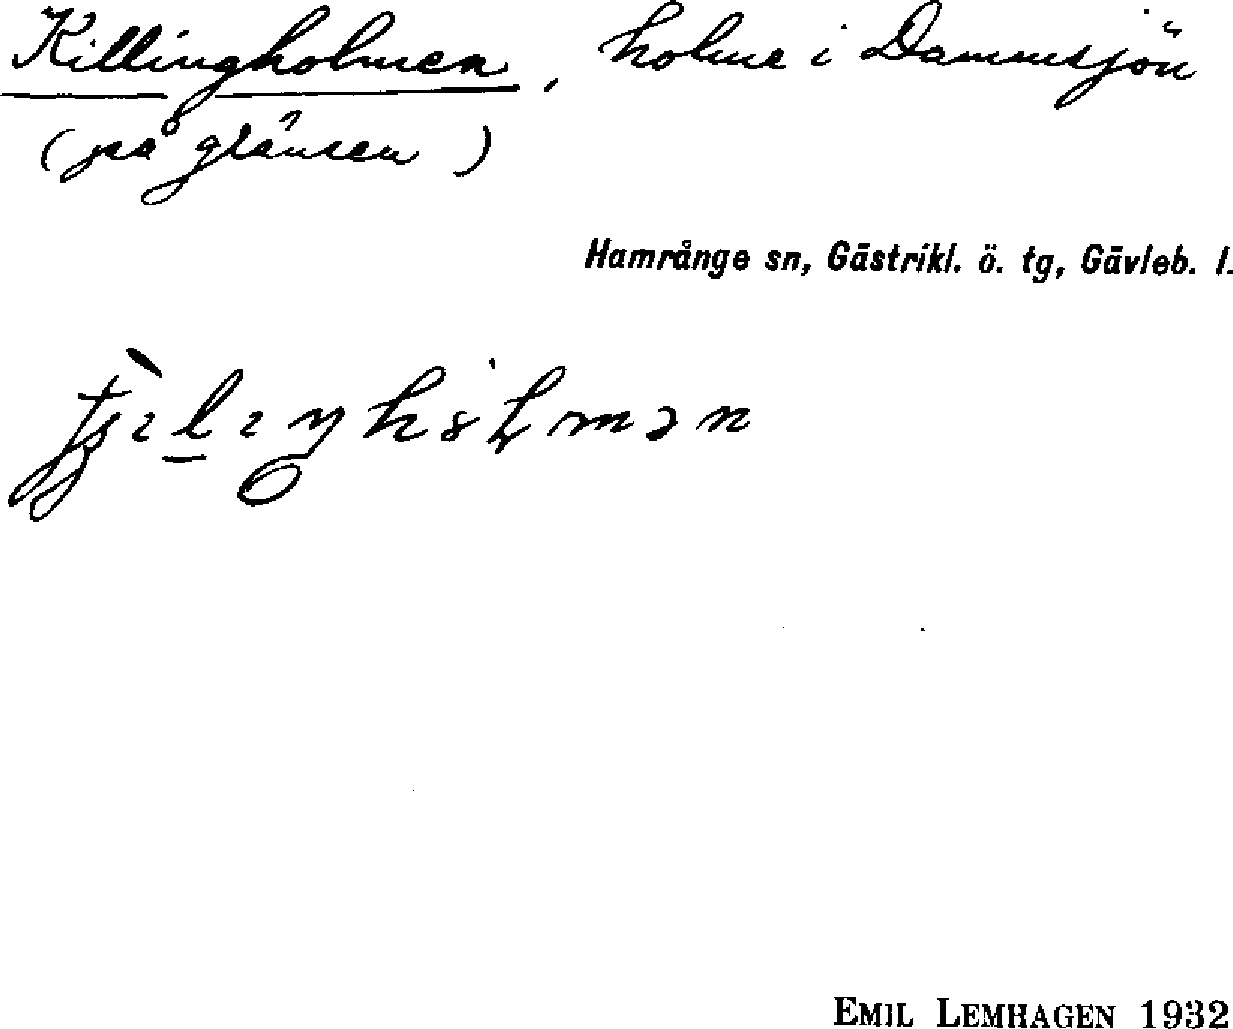 Killingholmen, holme i Dammsjön
(på gränsen)
Hamrånge sn, Gästrikl. ö. tg, Gävleb. l.
EMIL LEMHAGEN 1932